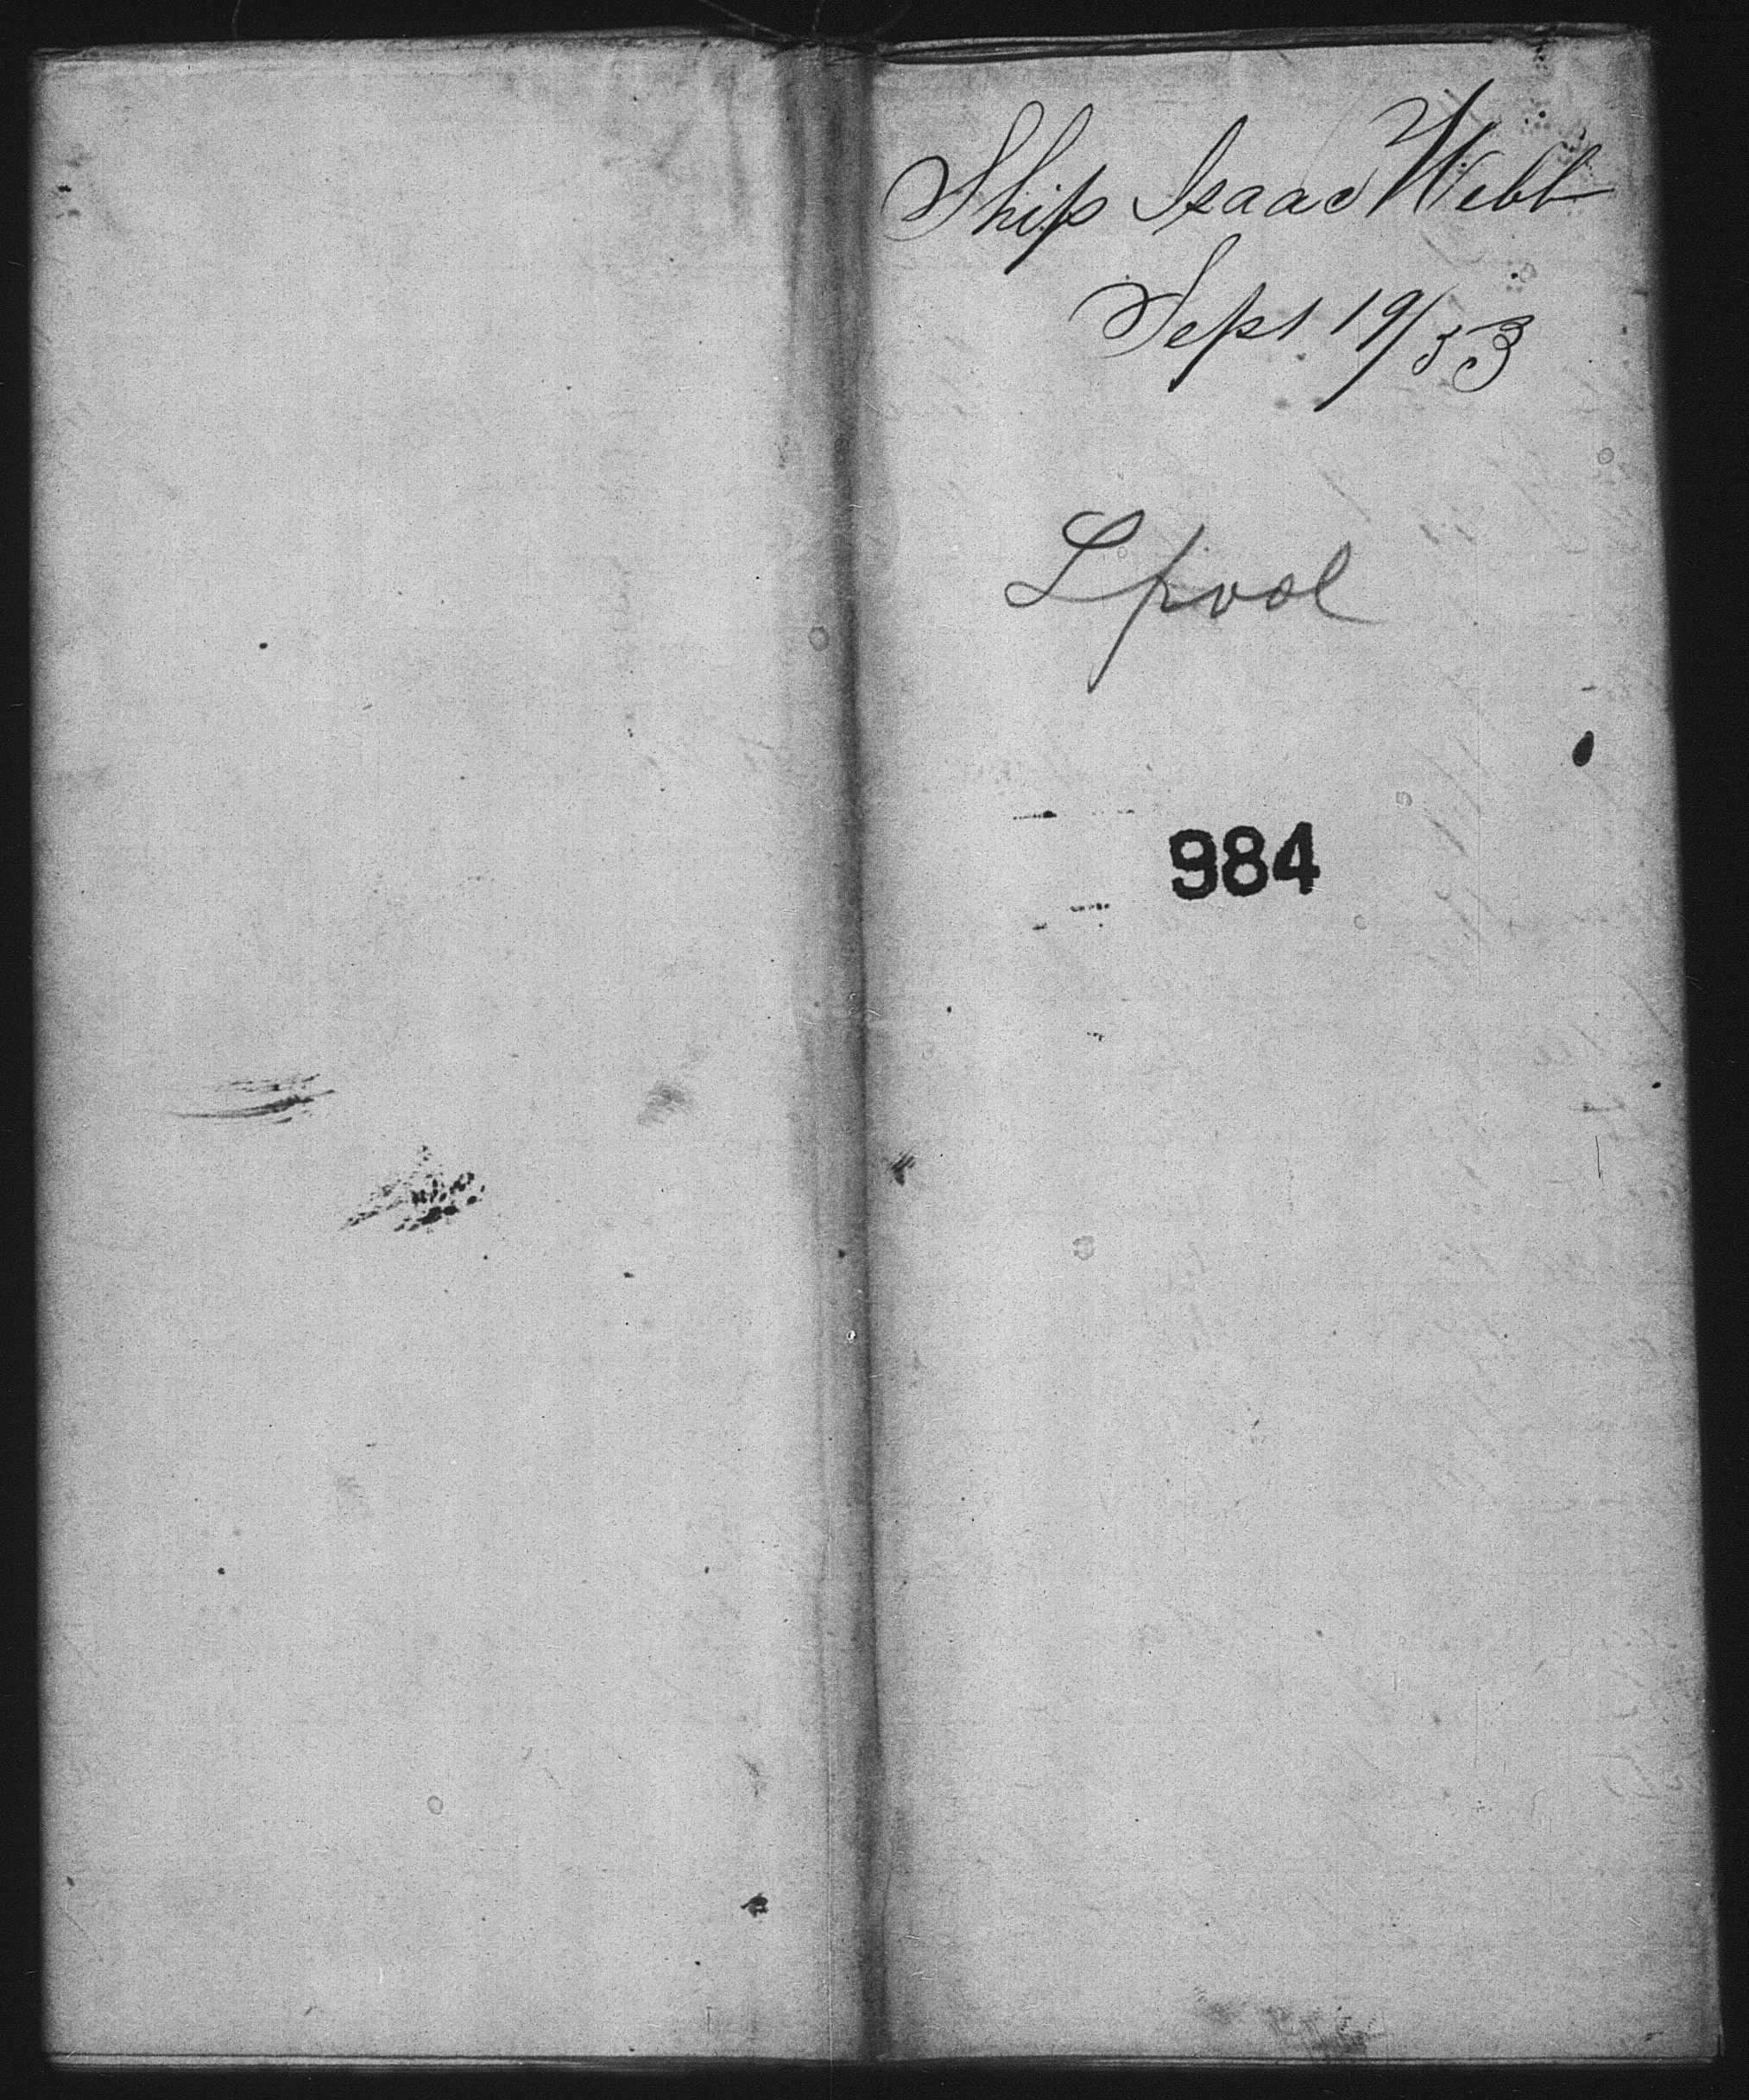 Ship Isaac Webb
Sept 19/53
Lpool
984